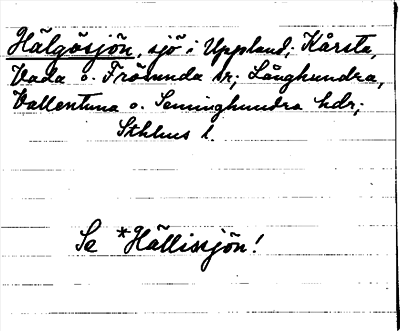 Hälgösjön, sjö i Uppland; Kårsta,
Vada o. Frösunda sr; Långhundra,
Vallentuna o. Seminghundra hdr;
Sthlms l.
Se *Hällissjön!